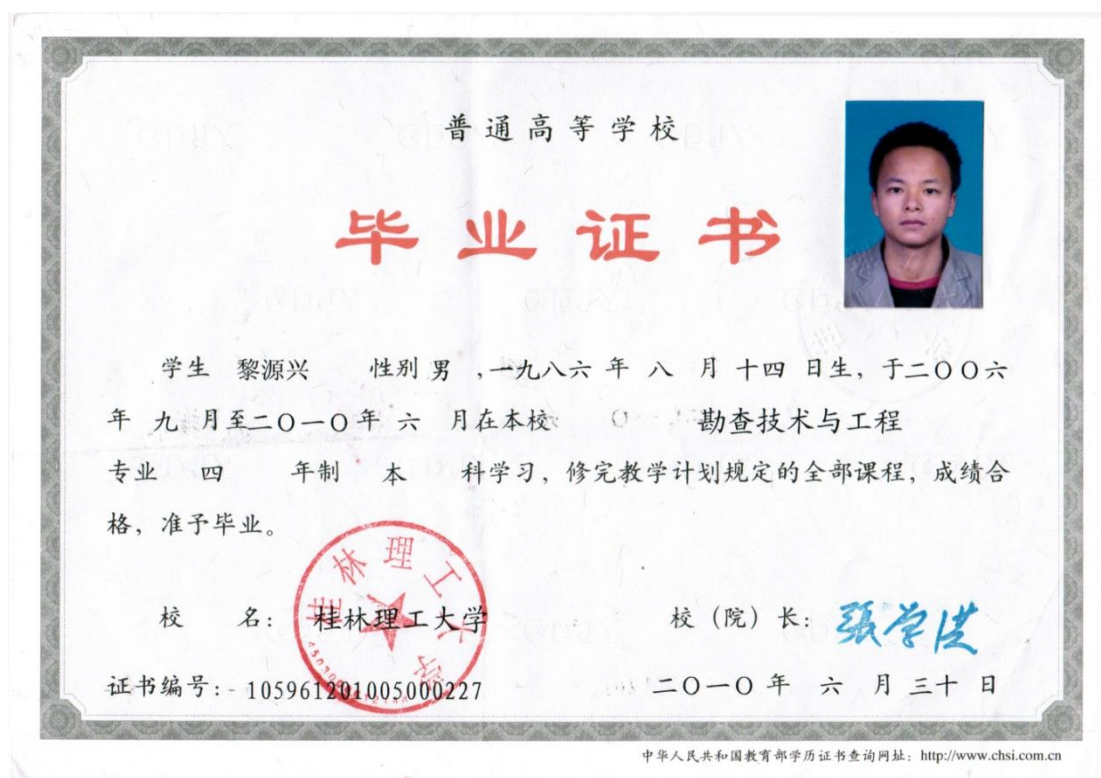 普通高等学校
毕业证书
学生 黎源兴 性别 男 ,一九八六 年 八 月 十四 日生, 于二〇〇六
年 九 月至二〇一〇年 六 月在本校 勘查技术与工程
专业 四 年制 本 科学习, 修完教学计划规定的全部课程, 成绩合
格, 准予毕业。
桂林理工大学
校 名: 桂林理工大学 校 (院) 长: 張学洪
证书编号: 105961201005000227 二〇一〇 年 六 月 三十 日
中华人民共和国教育部学历证书查询网址: http://www.chsi.com.cn